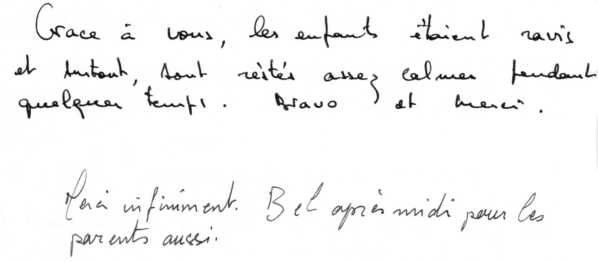 Grace à vous, les enfants étaient ravis
et surtout, sont restés assez calmes pendant
quelques temps. Bravo et merci.
Merci infiniment. Bel après midi pour les
parents aussi.